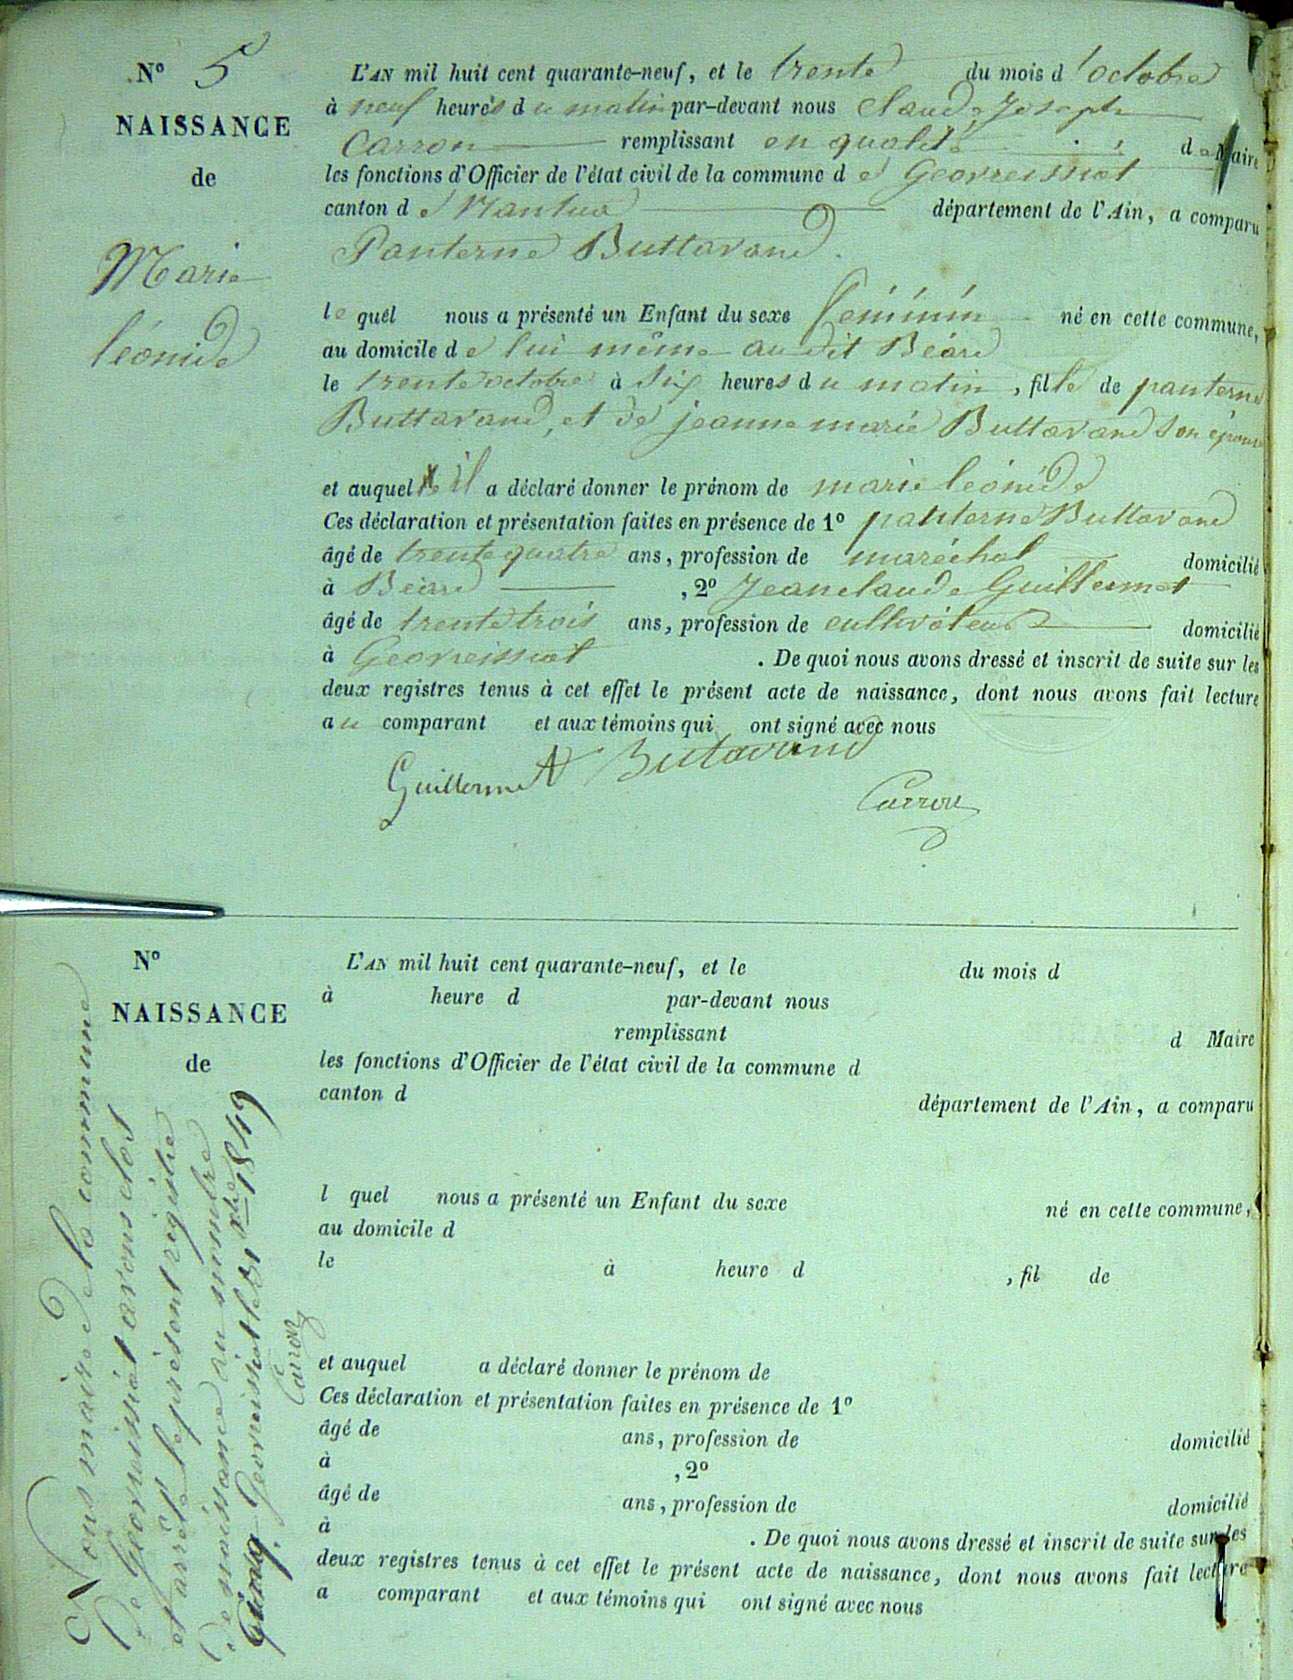 N° 5
NAISSANCE
de
Marie
léonide
L'AN mil huit cent quarante-neuf, et le trente du mois d'octobre
à neuf heures du matin par-devant nous Claude Joseph
Carron remplissant en qualité de Maire
les fonctions d'Officier de l'état civil de la commune de Geovreissiat
canton de Nantua département de l'Ain, a comparu
Panterne Buttavand.
le quel nous a présenté un Enfant du sexe féminin né en cette commune,
au domicile de lui même au dit Béard
le trente octobre à six heures du matin, fille de panterne
Buttavand, et de jeanne marie Buttavand son épouse
et auquel il a déclaré donner le prénom de marie léonide
Ces déclaration et présentation faites en présence de 1° panterne Buttavand
âgé de trente quatre ans, profession de maréchal domicilié
à Béard , 2° Jean claude Guillermet
âgé de trente trois ans, profession de cultivateur domicilié
à Geovreissiat . De quoi nous avons dressé et inscrit de suite sur les
deux registres tenus à cet effet le présent acte de naissance, dont nous avons fait lecture
au comparant et aux témoins qui ont signé avec nous
Guillermet Butavand
Carron
N°
NAISSANCE
de
L'AN mil huit cent quarante-neuf, et le du mois d
à heure d par-devant nous
remplissant d Maire
les fonctions d'Officier de l'état civil de la commune d
canton d département de l'Ain, a comparu
l quel nous a présenté un Enfant du sexe né en cette commune,
au domicile d
le à heure d , fil de
et auquel a déclaré donner le prénom de
Ces déclaration et présentation faites en présence de 1°
âgé de ans, profession de domicilié
à , 2°
âgé de ans, profession de domicilié
à . De quoi nous avons dressé et inscrit de suite sur les
deux registres tenus à cet effet le présent acte de naissance, dont nous avons fait lecture
a comparant et aux témoins qui ont signé avec nous
Nous maire de la commune
de Geovreissiat avons clos
et arrêté le présent régistre
de naissance au nombre
de cinq. Geovreissiat le 31 xbre 1849
Carron